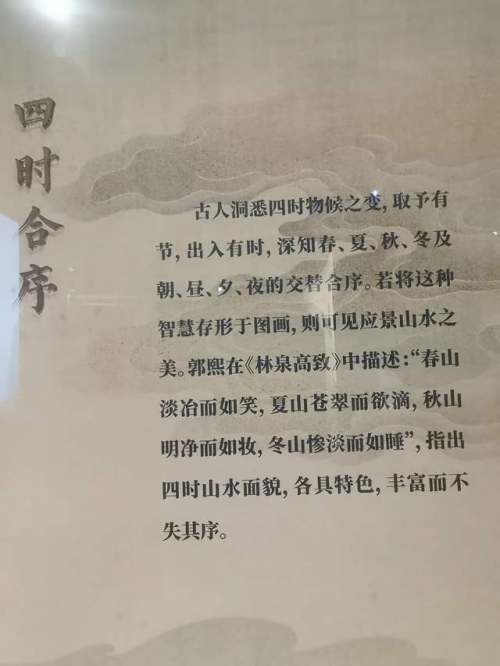 四时合序
古人洞悉四时物候之变，取予有
节，出入有时，深知春、夏、秋、冬及
朝、昼、夕、夜的交替合序。若将这种
智慧存形于图画，则可见应景山水之
美。郭熙在《林泉高致》中描述：“春山
淡冶而如笑，夏山苍翠而欲滴，秋山
明净而如妆，冬山惨淡而如睡”，指出
四时山水面貌，各具特色，丰富而不
失其序。